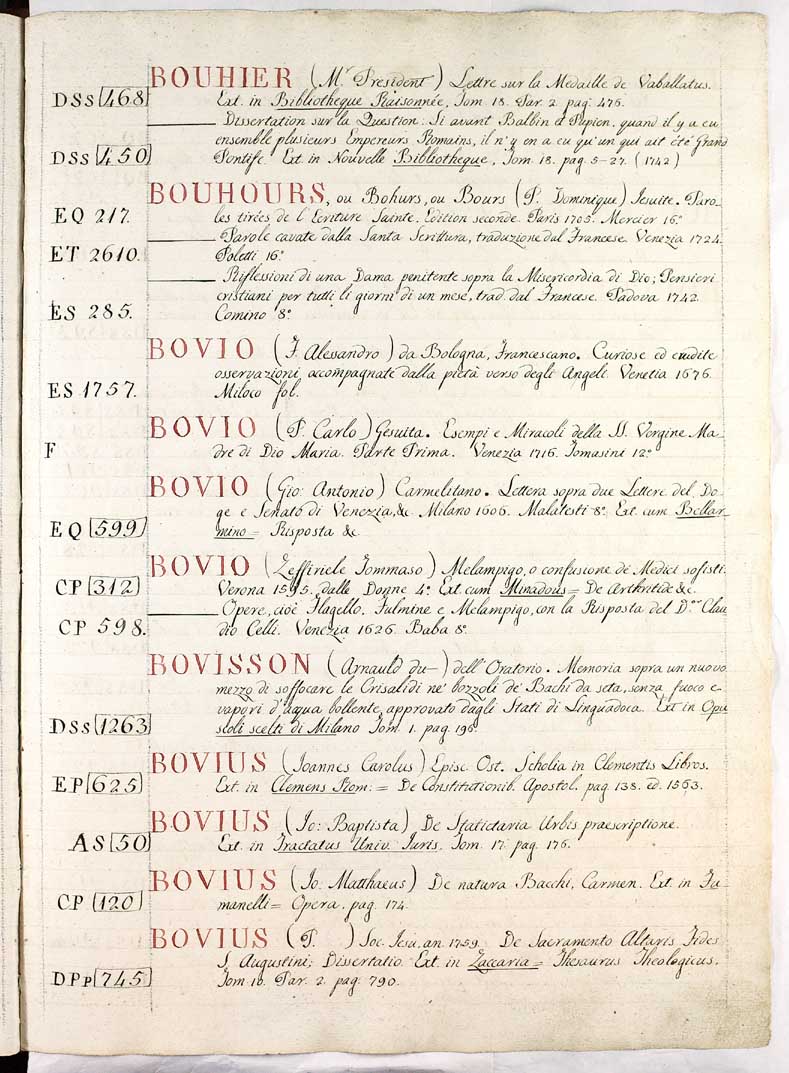 BOUHIER (Mr. President) Lettre sur la Medaille de Vaballatus.
DSs 468 Ext. in Bibliotheque Raisonnée, Tom 18. Par. 2. pag. 476.
Dissertation sur la Question: Si avant Balbin et Pupien. quand il y a eu
ensemble plusieurs Empereurs Romains, il n'y en a eu qu'un qui ait été Grand
DSs 450 Pontife. Ext. in Nouvelle Bibliotheque, Tom. 18. pag. 5-27. (1742)
BOUHOURS, ou Bohurs, ou Bours (P. Dominique) Iesuite. Paro-
EQ 217. les tirées de l'Ecriture Sainte. Edition seconde. Paris 1705. Mercier 16°
Parole cavate dalla Santa Scrittura, traduzione dal Francese. Venezia 1724.
ET 2610. Poletti 16°
Riflessioni di una Dama penitente sopra la Misericordia di Dio; Pensieri
cristiani per tutti li giorni di un mese, trad. dal Francese. Padova 1742.
ES 285. Comino 8°
BOVIO (F. Alessandro) da Bologna, Francescano. Curiose ed erudite
osservazioni, accompagnate dalla pietà verso degli Angeli. Venetia 1676.
ES 1757. Miloco fol.
BOVIO (P. Carlo) Gesuita. Esempi e Miracoli della SS. Vergine Ma-
F dre di Dio Maria. Parte Prima. Venezia 1716. Tomasini 12°
BOVIO (Gio: Antonio) Carmelitano. Lettera sopra due Lettere del Do-
ge e Senato di Venezia, &c. Milano 1606. Malatesti 8°. Ext. cum Bellar-
EQ 599 mino = Risposta &c.
BOVIO (Zeffiriele Tommaso) Melampigo, o confusione de Medici sofisti.
CP 312 Verona 1595. dalle Donne 4°. Ext. cum Minadous = De Arthritide &c.
Opere, cioè Flagello. Fulmine e Melampigo, con la Risposta del D.or Clau-
CP 598. dio Celli. Venezia 1626. Baba 8°.
BOVISSON (Arnauld du-) dell' Oratorio. Memoria sopra un nuovo
mezzo di soffocare le Crisalidi ne' bozzoli de' Bachi da seta, senza fuoco e
vapori d'acqua bollente, approvato dagli Stati di Linguadoca. Ext in Opu-
DSs 1263 scoli scelti di Milano Tom. 1. pag. 196.
BOVIUS (Ioannes Carolus) Episc. Ost. Scholia in Clementis Libros.
EP 625 Ext. in Clemens Rom: = De Constitutionib. Apostol. pag. 138. ed. 1563.
BOVIUS (Io: Baptista) De Statictaria Urbis praescriptione.
AS 50 Ext. in Tractatus Univ. Iuris. Tom. 17. pag. 176.
BOVIUS (Io. Matthaeus) De natura Bacchi, Carmen. Ext. in Fu-
CP 120 manelli = Opera. pag. 174.
BOVIUS (P. ) Soc. Iesu. an. 1759. De Sacramento Altaris Fides
S. Augustini; Dissertatio. Ext. in Zaccaria = Thesaurus Theologicus.
DPp 745 Tom 10. Par. 2. pag. 790.